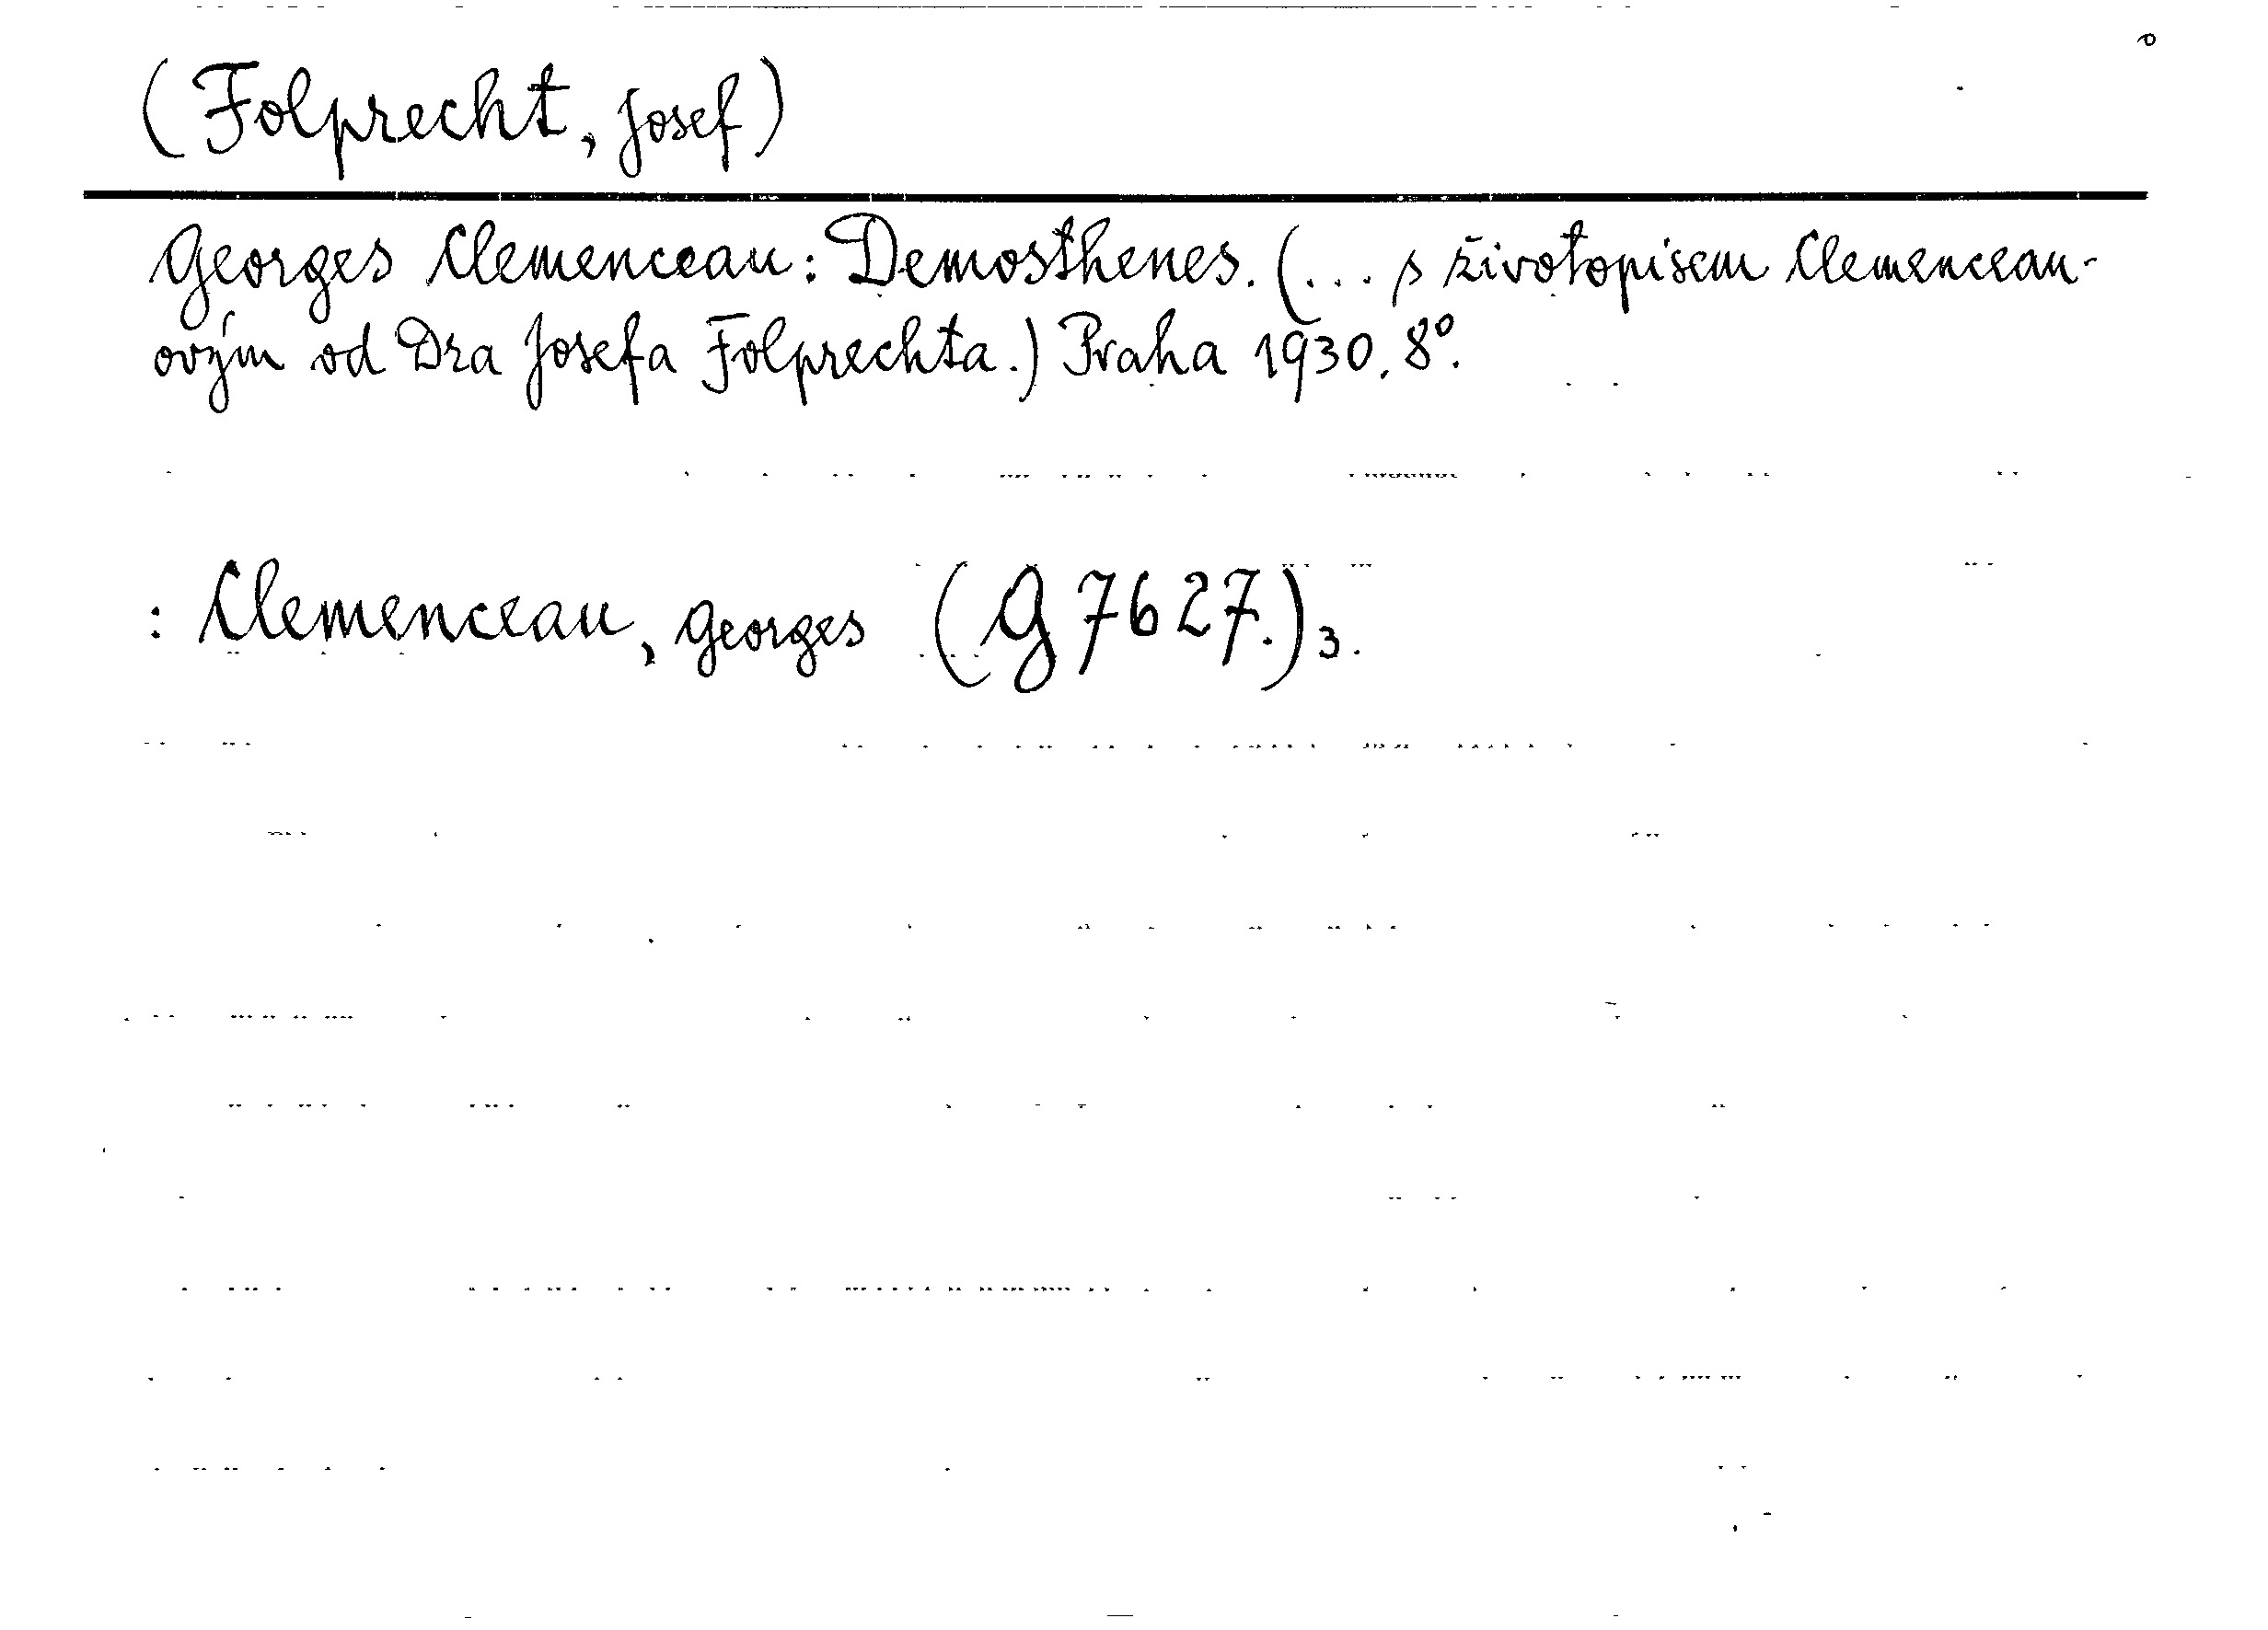 (Folprecht, Josef)
Georges Clemenceau: Demosthenes. (... s životopisem Clemenceau-
ovým od Dra Josefa Folprechta.) Praha 1930. 8°.
: Clemenceau, Georges (G 7627.)3.